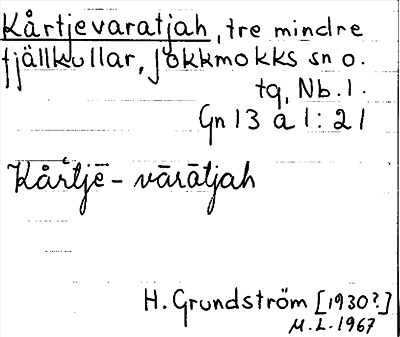 Kårtjevaratjah, tre mindre
fjällkullar, Jokkmokks sn o.
tg, Nb. l.
Gn 13 a 1:21
Kårtjē - vārātjah
H. Grundström [1930?]
M.L. 1967